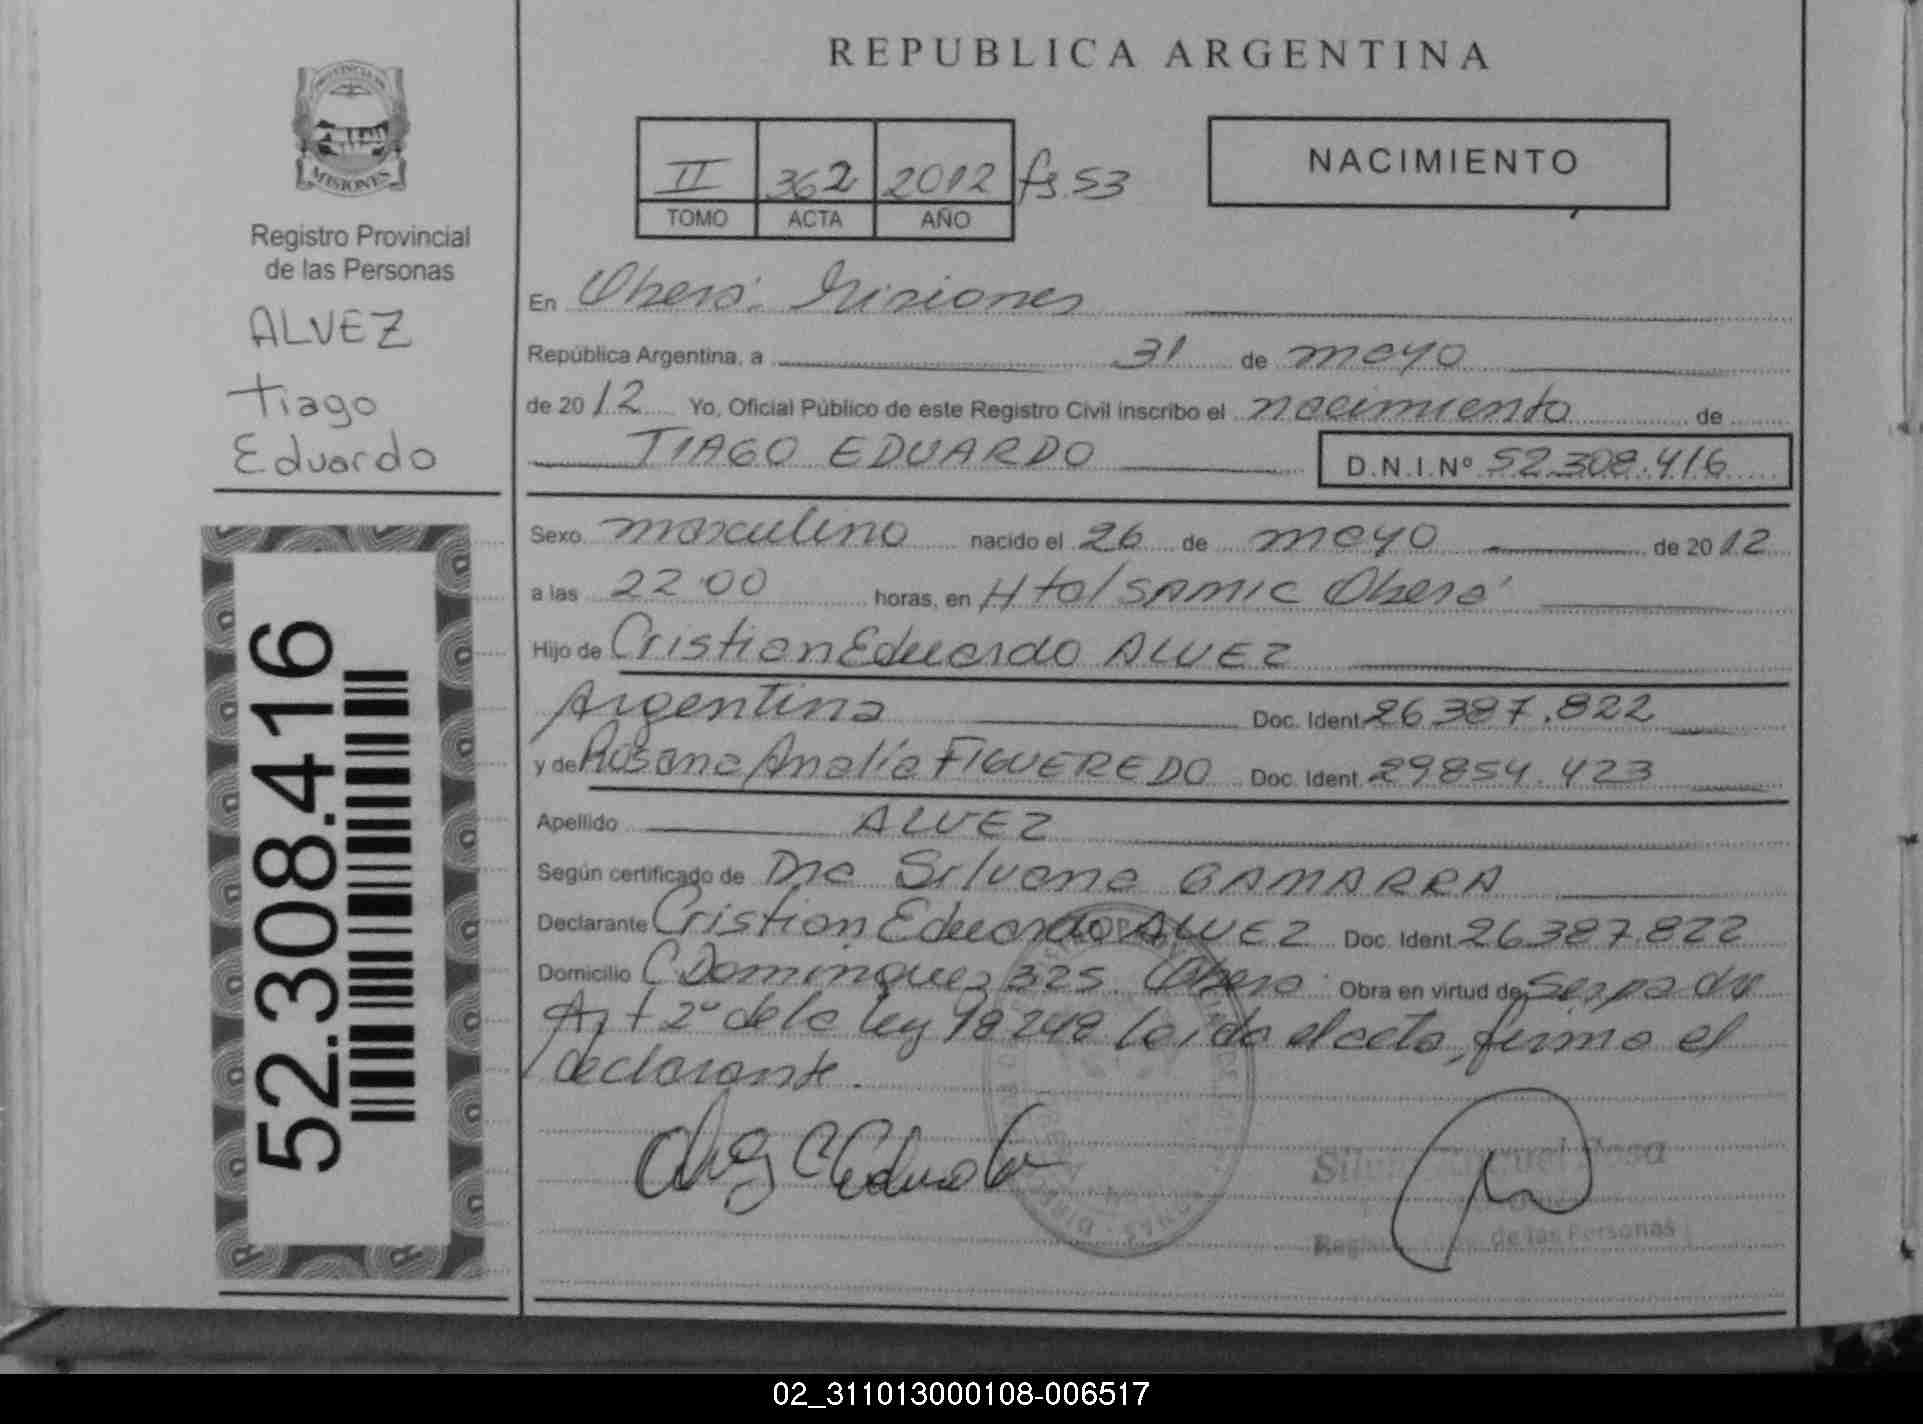 REPUBLICA ARGENTINA
PROVINCIA DE
MISIONES
Registro Provincial
de las Personas
ALVEZ
Tiago
Eduardo
52.308.416
II 362 2012 fs. 53
TOMO ACTA AÑO
NACIMIENTO
En Oberá. Misiones
República Argentina, a 31 de mayo
de 2012 Yo, Oficial Público de este Registro Civil inscribo el nacimiento de
TIAGO EDUARDO D.N.I.Nº 52.308.416
Sexo masculino nacido el 26 de mayo de 2012
a las 22:00 horas, en Htal SAMIC Oberá
Hijo de Cristian Eduardo ALVEZ
Argentina Doc. Ident. 26387.822
y de Rosana Analía FIGUEREDO Doc. Ident. 29854.423
Apellido ALVEZ
Según certificado de Dra Silvana GAMARRA
Declarante Cristian Eduardo ALVEZ Doc. Ident. 26387.822
Domicilio C Dominguez 325 Oberá Obra en virtud de
Art 2º de la ley 18248 Leída el acta, firma el
declarante.
de las Personas
02_311013000108-006517